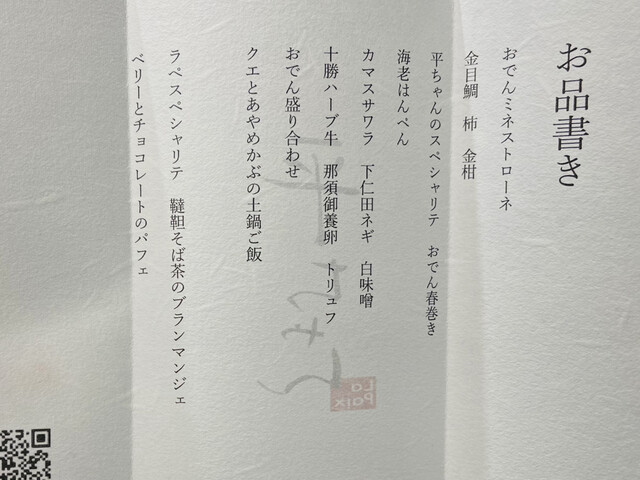 お品書き
おでんミネストローネ
金目鯛　柿　金柑
平ちゃんのスペシャリテ　おでん春巻き
海老はんぺん
カマスサワラ　下仁田ネギ　白味噌
十勝ハーブ牛　那須御養卵　トリュフ
おでん盛り合わせ
クエとあやめかぶの土鍋ご飯
ラペスペシャリテ　韃靼そば茶のブランマンジェ
ベリーとチョコレートのパフェ
平ちゃん
La Paix